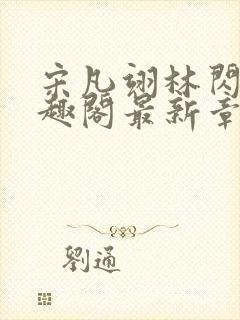 宋凡翊林閃
趣閣最新章
劉通